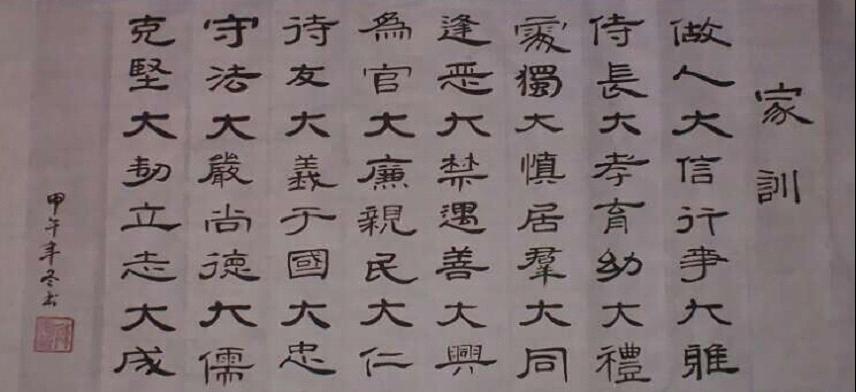 家訓
做人大信行事大雅
侍長大孝育幼大禮
處獨大慎居羣大同
逢恶大禁遇善大興
為官大廉親民大仁
待友大義于國大忠
守法大嚴尚德大儒
克堅大韧立志大成
甲午年冬书